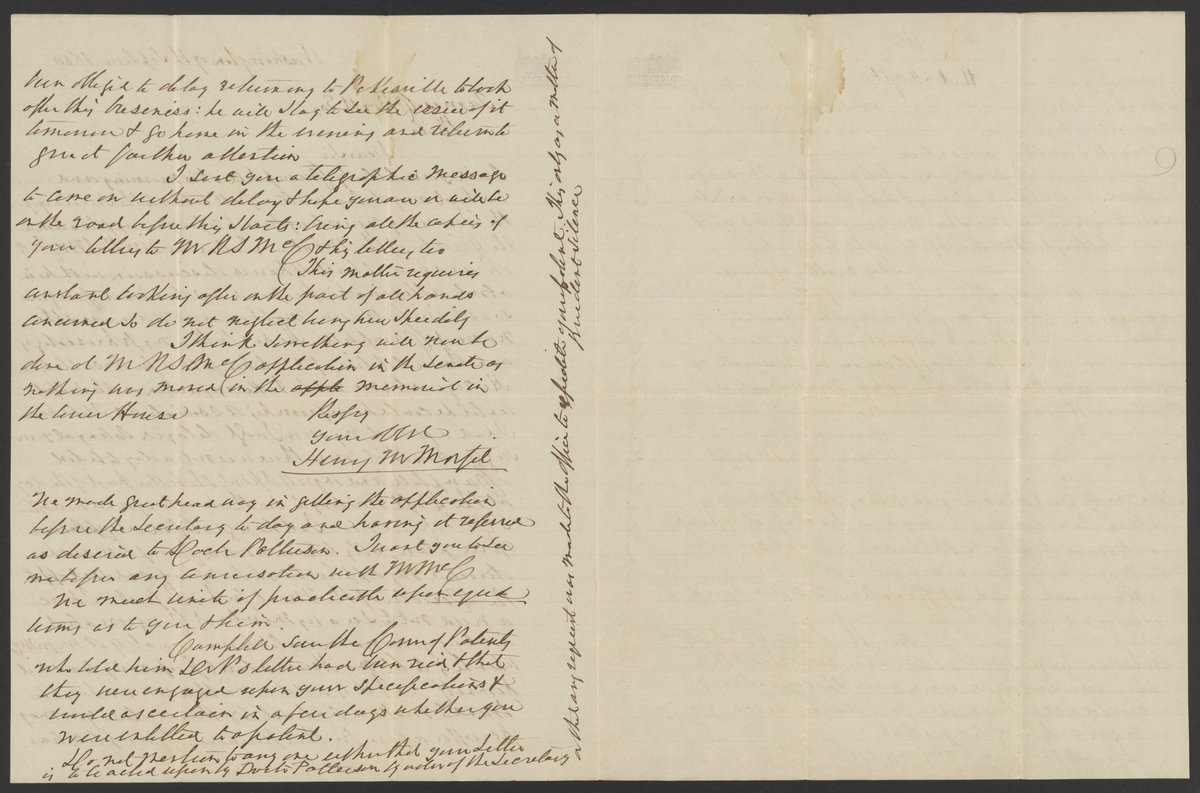 been obliged to delay returning to Pottsville to look
after this business: he will stay to see the issue of it
tomorrow & go home in the evening and return to
give it further attention
I sent you a telegraphic message
to come on without delay & hope you are or will be
on the road before this starts: bring all the copies of
your letters to Mr R S McC & his letters too
This matter requires
constant looking after on the part of all hands
concerned so do not neglect being here speedily
I think something will now be
done at Mr R S McC application in the Senate as
nothing was moved in the apple memorial in
the lower House
Respy
Your Obt
Henry M Morfit
We made great head way in getting the application
before the Secretary to day and having it referred
as desired to Doct Patterson. I want you to see
me before any conversation with Mr McC
We must unite if practicable upon equal
terms as to you & him
Campbell saw the Comr of Patents
who told him Dr P's letter had been recd & that
they were engaged upon your specifications &
would ascertain in a few days whether you
were entitled to a patent.
Do not mention to any one either that your letter
is to be acted upon by Doctr Patterson by order of the Secretary
or that any request was made to the office to expedite your patent. This only as a matter of
prudent silence